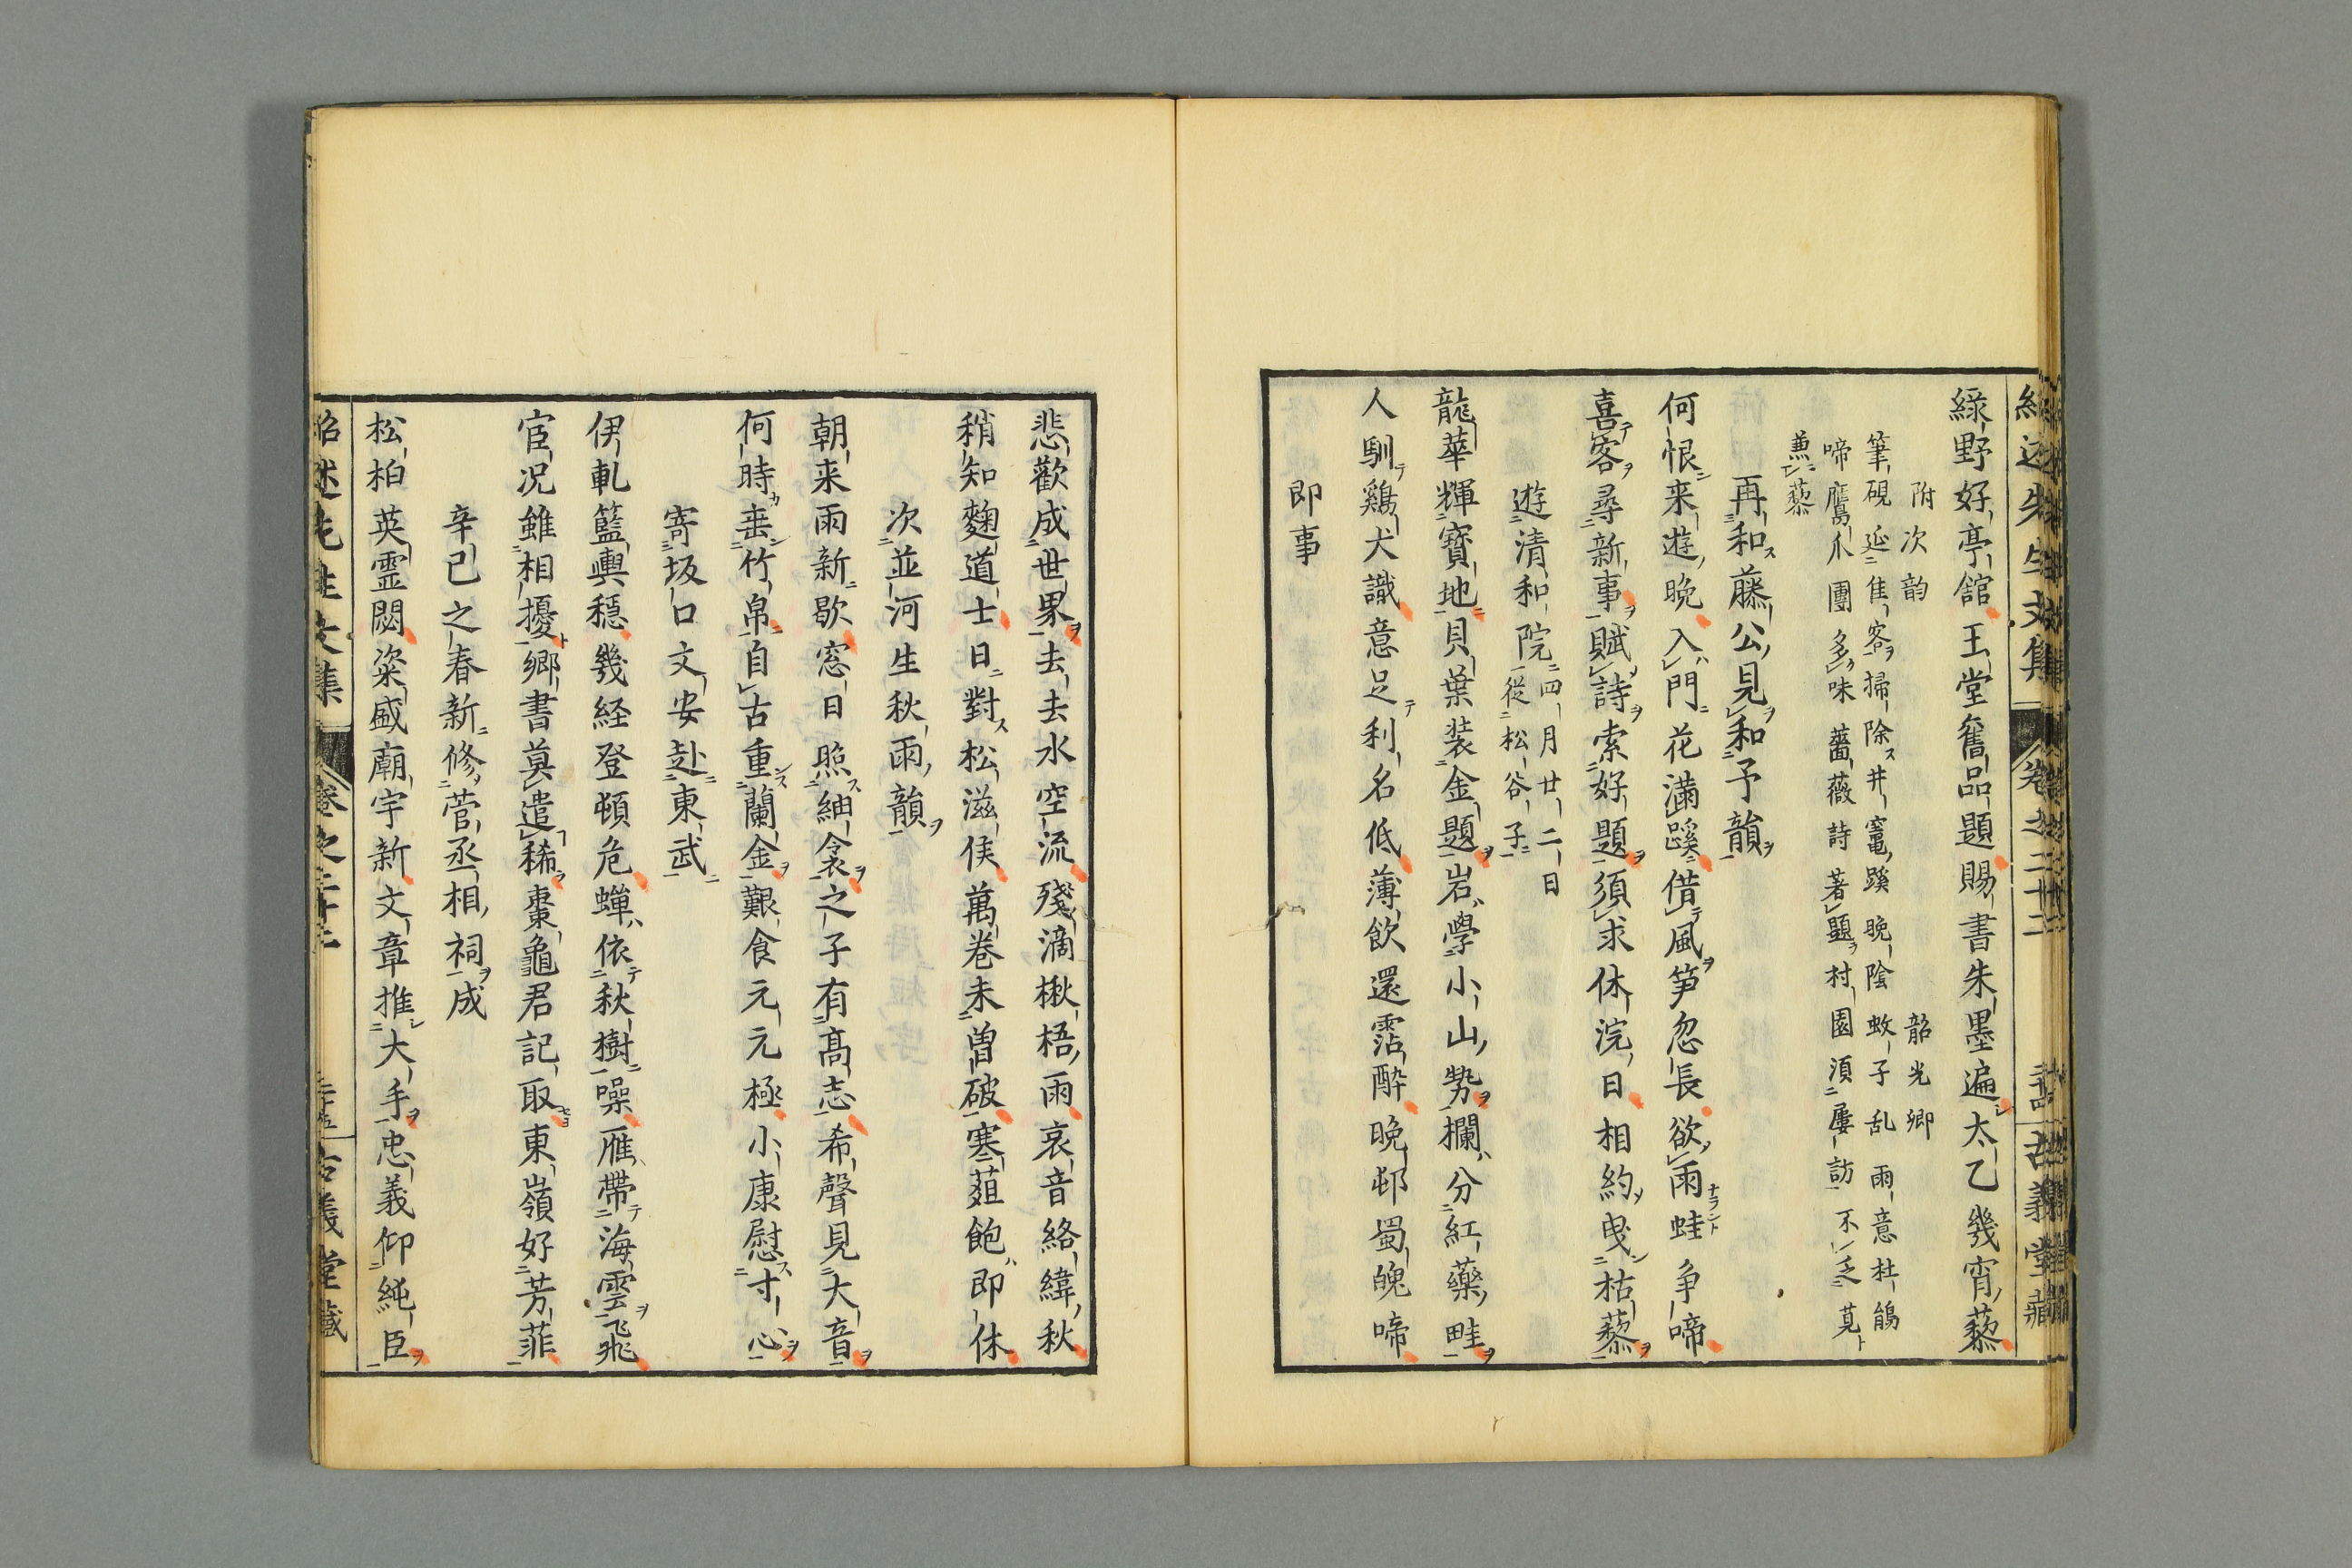 紹述先生文集 卷之二十二 古義堂藏
綠野好亭舘王堂舊品題賜書朱墨遍太乙幾宵藜
附次韵 韶光卿
筆硯延佳客掃除井竈蹊晩陰蚊子乱雨意杜鵑
啼鷹爪團多味薔薇詩著題村園須屢訪不乏莧
兼藜
再和藤公見和予韻
何恨来遊晩入門花滿蹊借風笋忽長欲雨蛙争啼
喜客尋新事賦詩索好題須求休浣日相約曳枯藜
遊清和院四月廿二日從松谷子
龍華輝寶地貝葉装金題岩學小山勢欄分紅藥畦
人馴鷄犬識意足利名低薄飲還霑酔晩邨蜀魄啼
即事
悲歡成世界去去水空流殘滴楸梧雨哀音絡緯秋
稍知麴道士日對松滋侯萬卷未曽破寒葅飽即休
次並河生秋雨韻
朝来雨新歇窓日照紬衾之子有髙志希聲見大音
何時垂竹帛自古重蘭金艱食元元極小康慰寸心
寄坂口文安赴東武
伊軋籃輿穏幾経登頓危蝉依秋樹噪雁帶海雲飛
宦况雖相擾鄉書莫遣稀棗龜君記取東嶺好芳菲
辛巳之春新修菅丞相祠成
松柏英霊閟粢盛廟宇新文章推大手忠義仰純臣
紹述先生文集 卷之二十二 古義堂藏